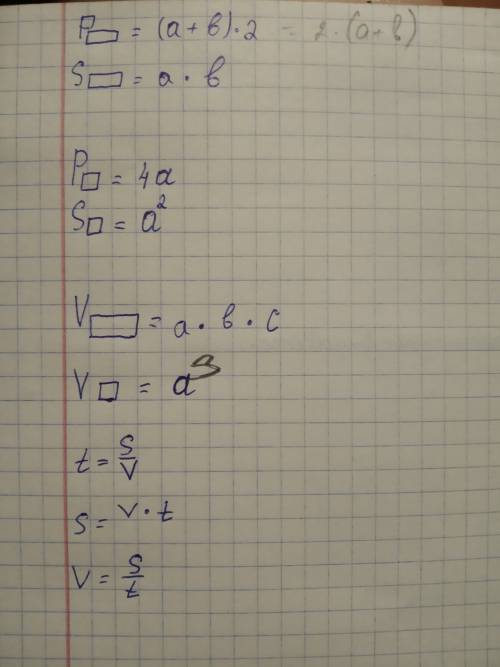 P▭ = (a + в) · 2 = 2 · (a+в)
S▭ = a · в
P□ = 4a
S□ = a²
V▭ = a · в · c
V□ = a³
t = S/V
s = v · t
v = S/t